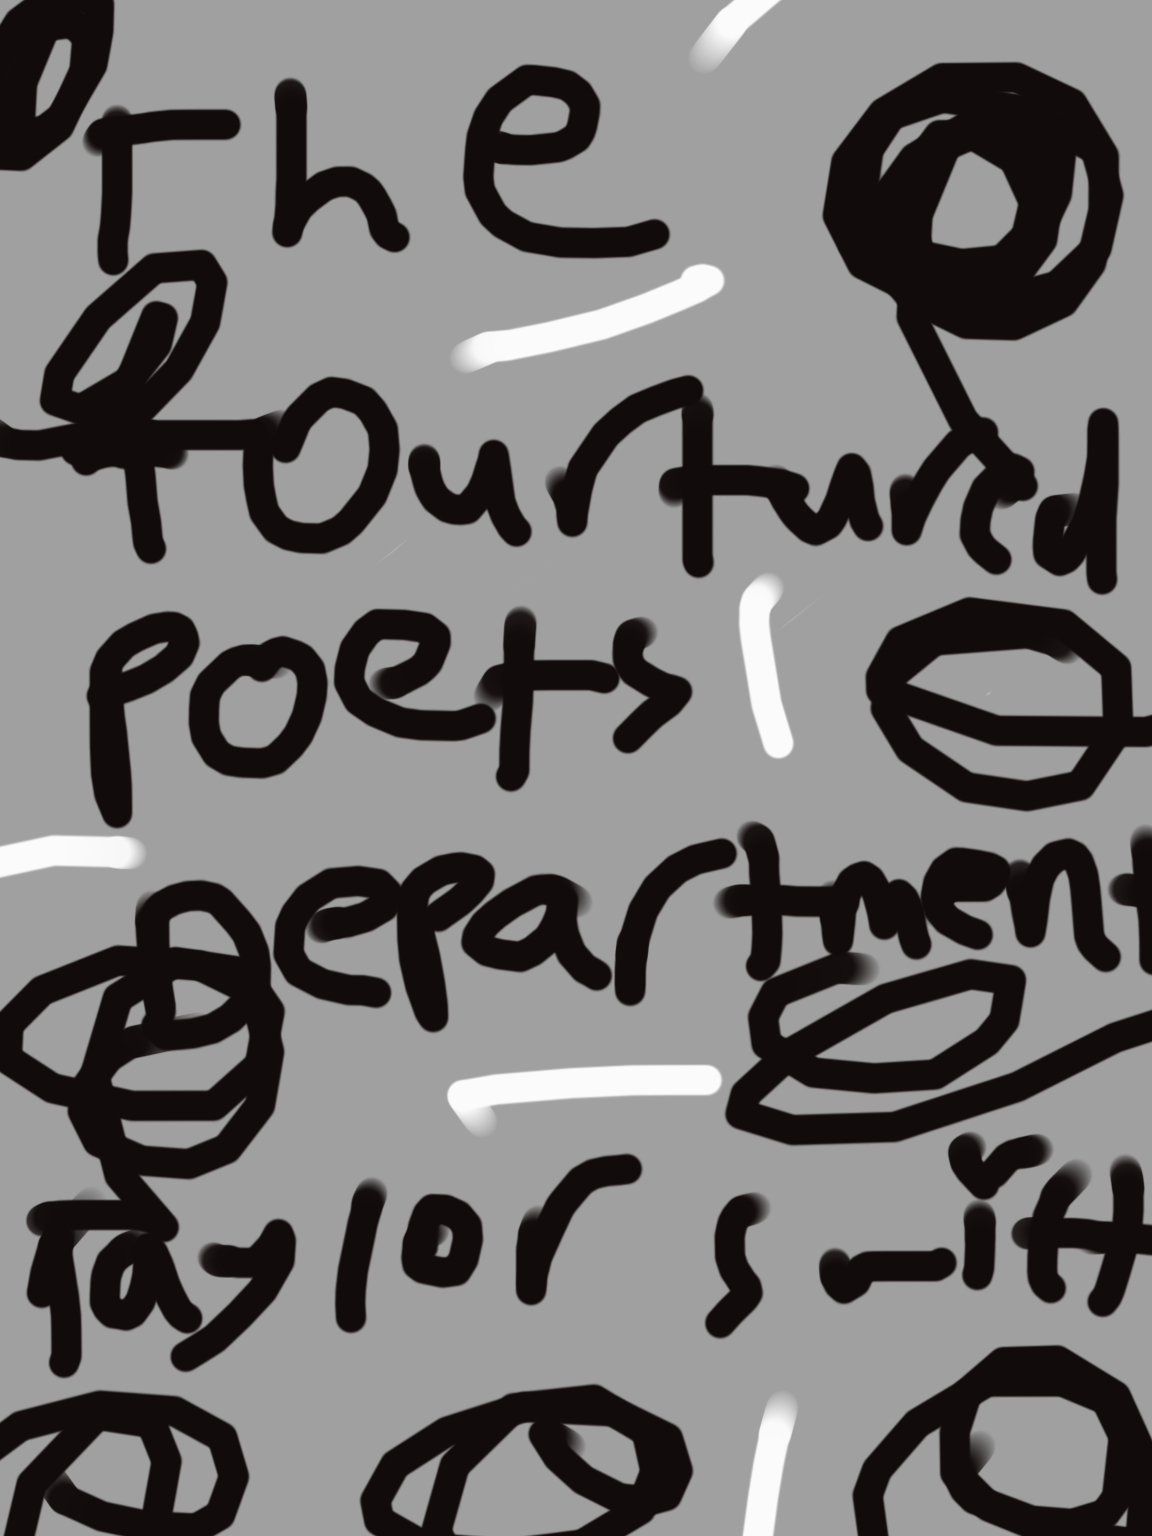 The
tourtured
poets
Department
Taylor swift